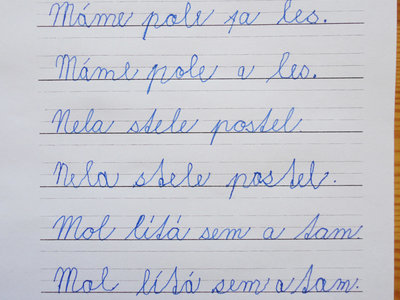 Máme pole a les.
Máme pole a les.
Nela stele postel.
Nela stele postel.
Mol lítá sem a tam
Mol lítá sem a tam.